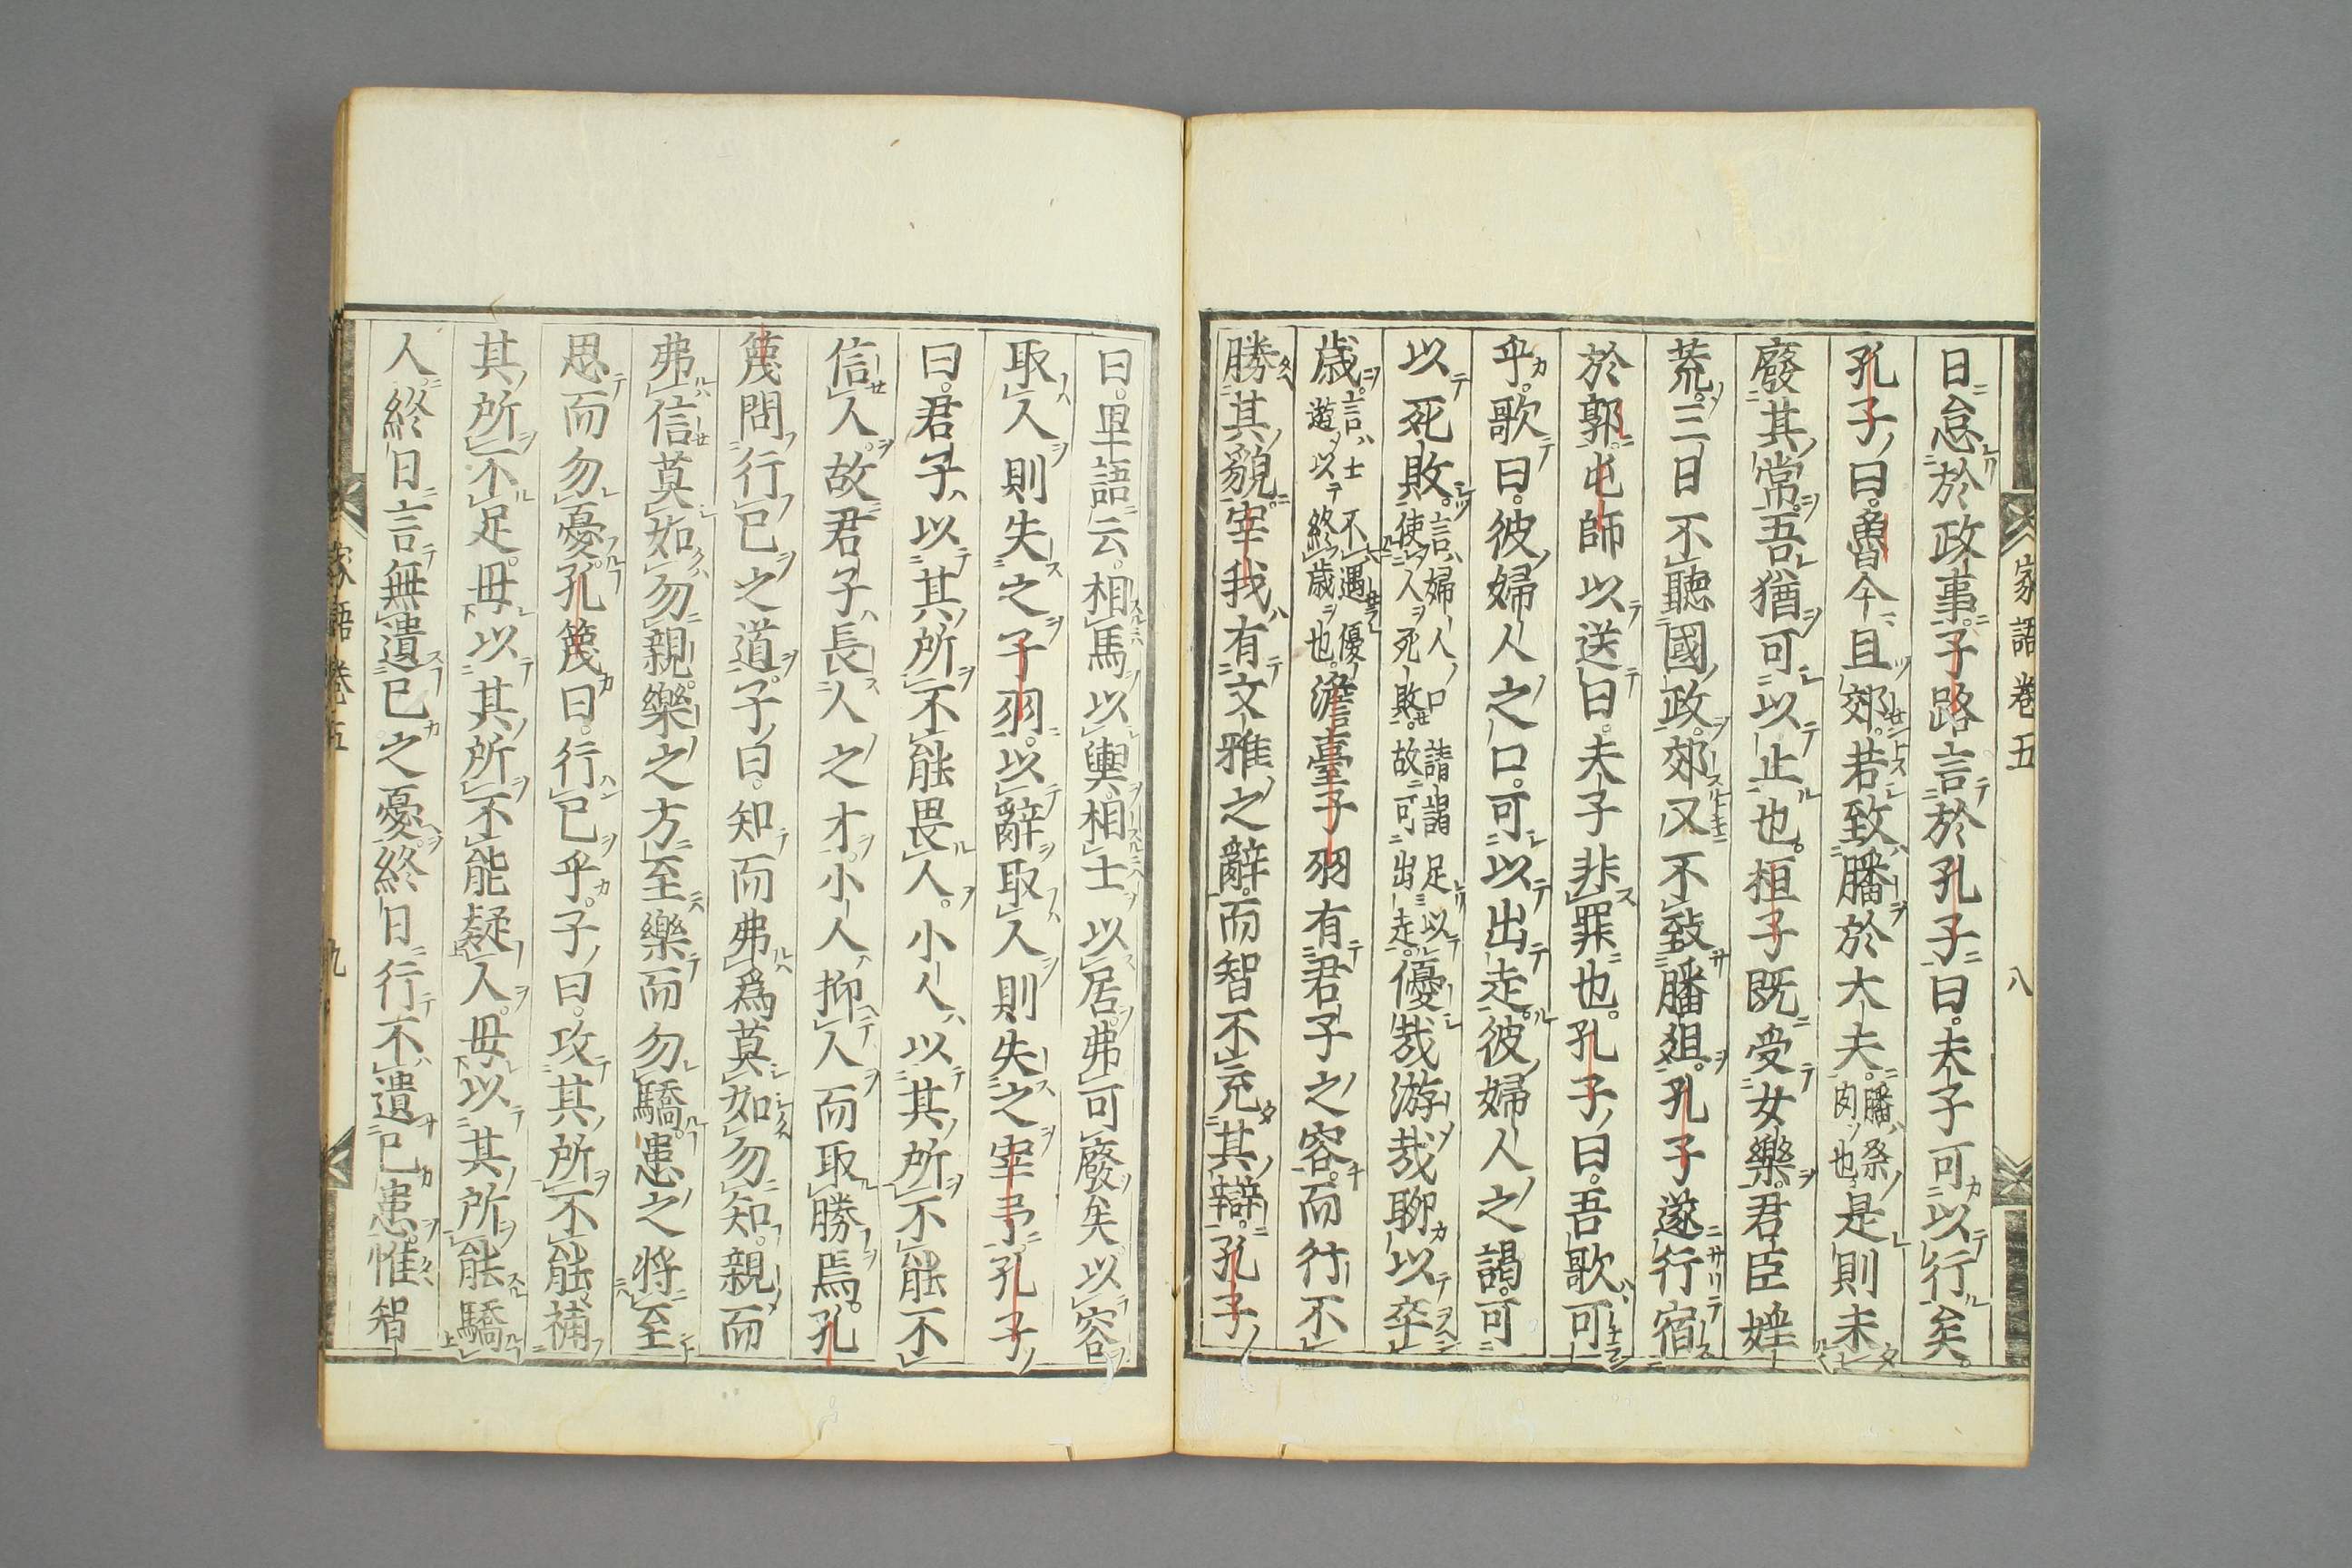 家語卷五 八
日怠於政事子路言於孔子曰夫子可以行矣
孔子曰魯今且郊若致膰於大夫膰祭肉也是則未
廢其常吾猶可以止也桓子既受女樂君臣婬
荒三日不聽國政郊又不致膰俎孔子遂行宿
於郭屯師以送曰夫子非罪也孔子曰吾歌可
乎歌曰彼婦人之口可以出走彼婦人之謁可
以死敗言婦人口請謁足以使人死敗故可出走優哉游哉聊以卒
歲言士不遇優遊以終歲也澹臺子羽有君子之容而行不
勝其貌宰我有文雅之辭而智不充其辯孔子
曰里語云相馬以輿相士以居弗可廢矣以容
取人則失之子羽以辭取人則失之宰予孔子
曰君子以其所不能畏人小人以其所不能不
信人故君子長人之才小人抑人而取勝焉孔
篾問行已之道子曰知而弗爲莫如勿知親而
弗信莫如勿親樂之方至樂而勿驕患之將至
思而勿憂孔篾曰行已乎子曰攻其所不能補
其所不足毋以其所不能疑人毋以其所能驕
人終日言無遺已之憂終日行不遺已患惟智
家語卷五 九